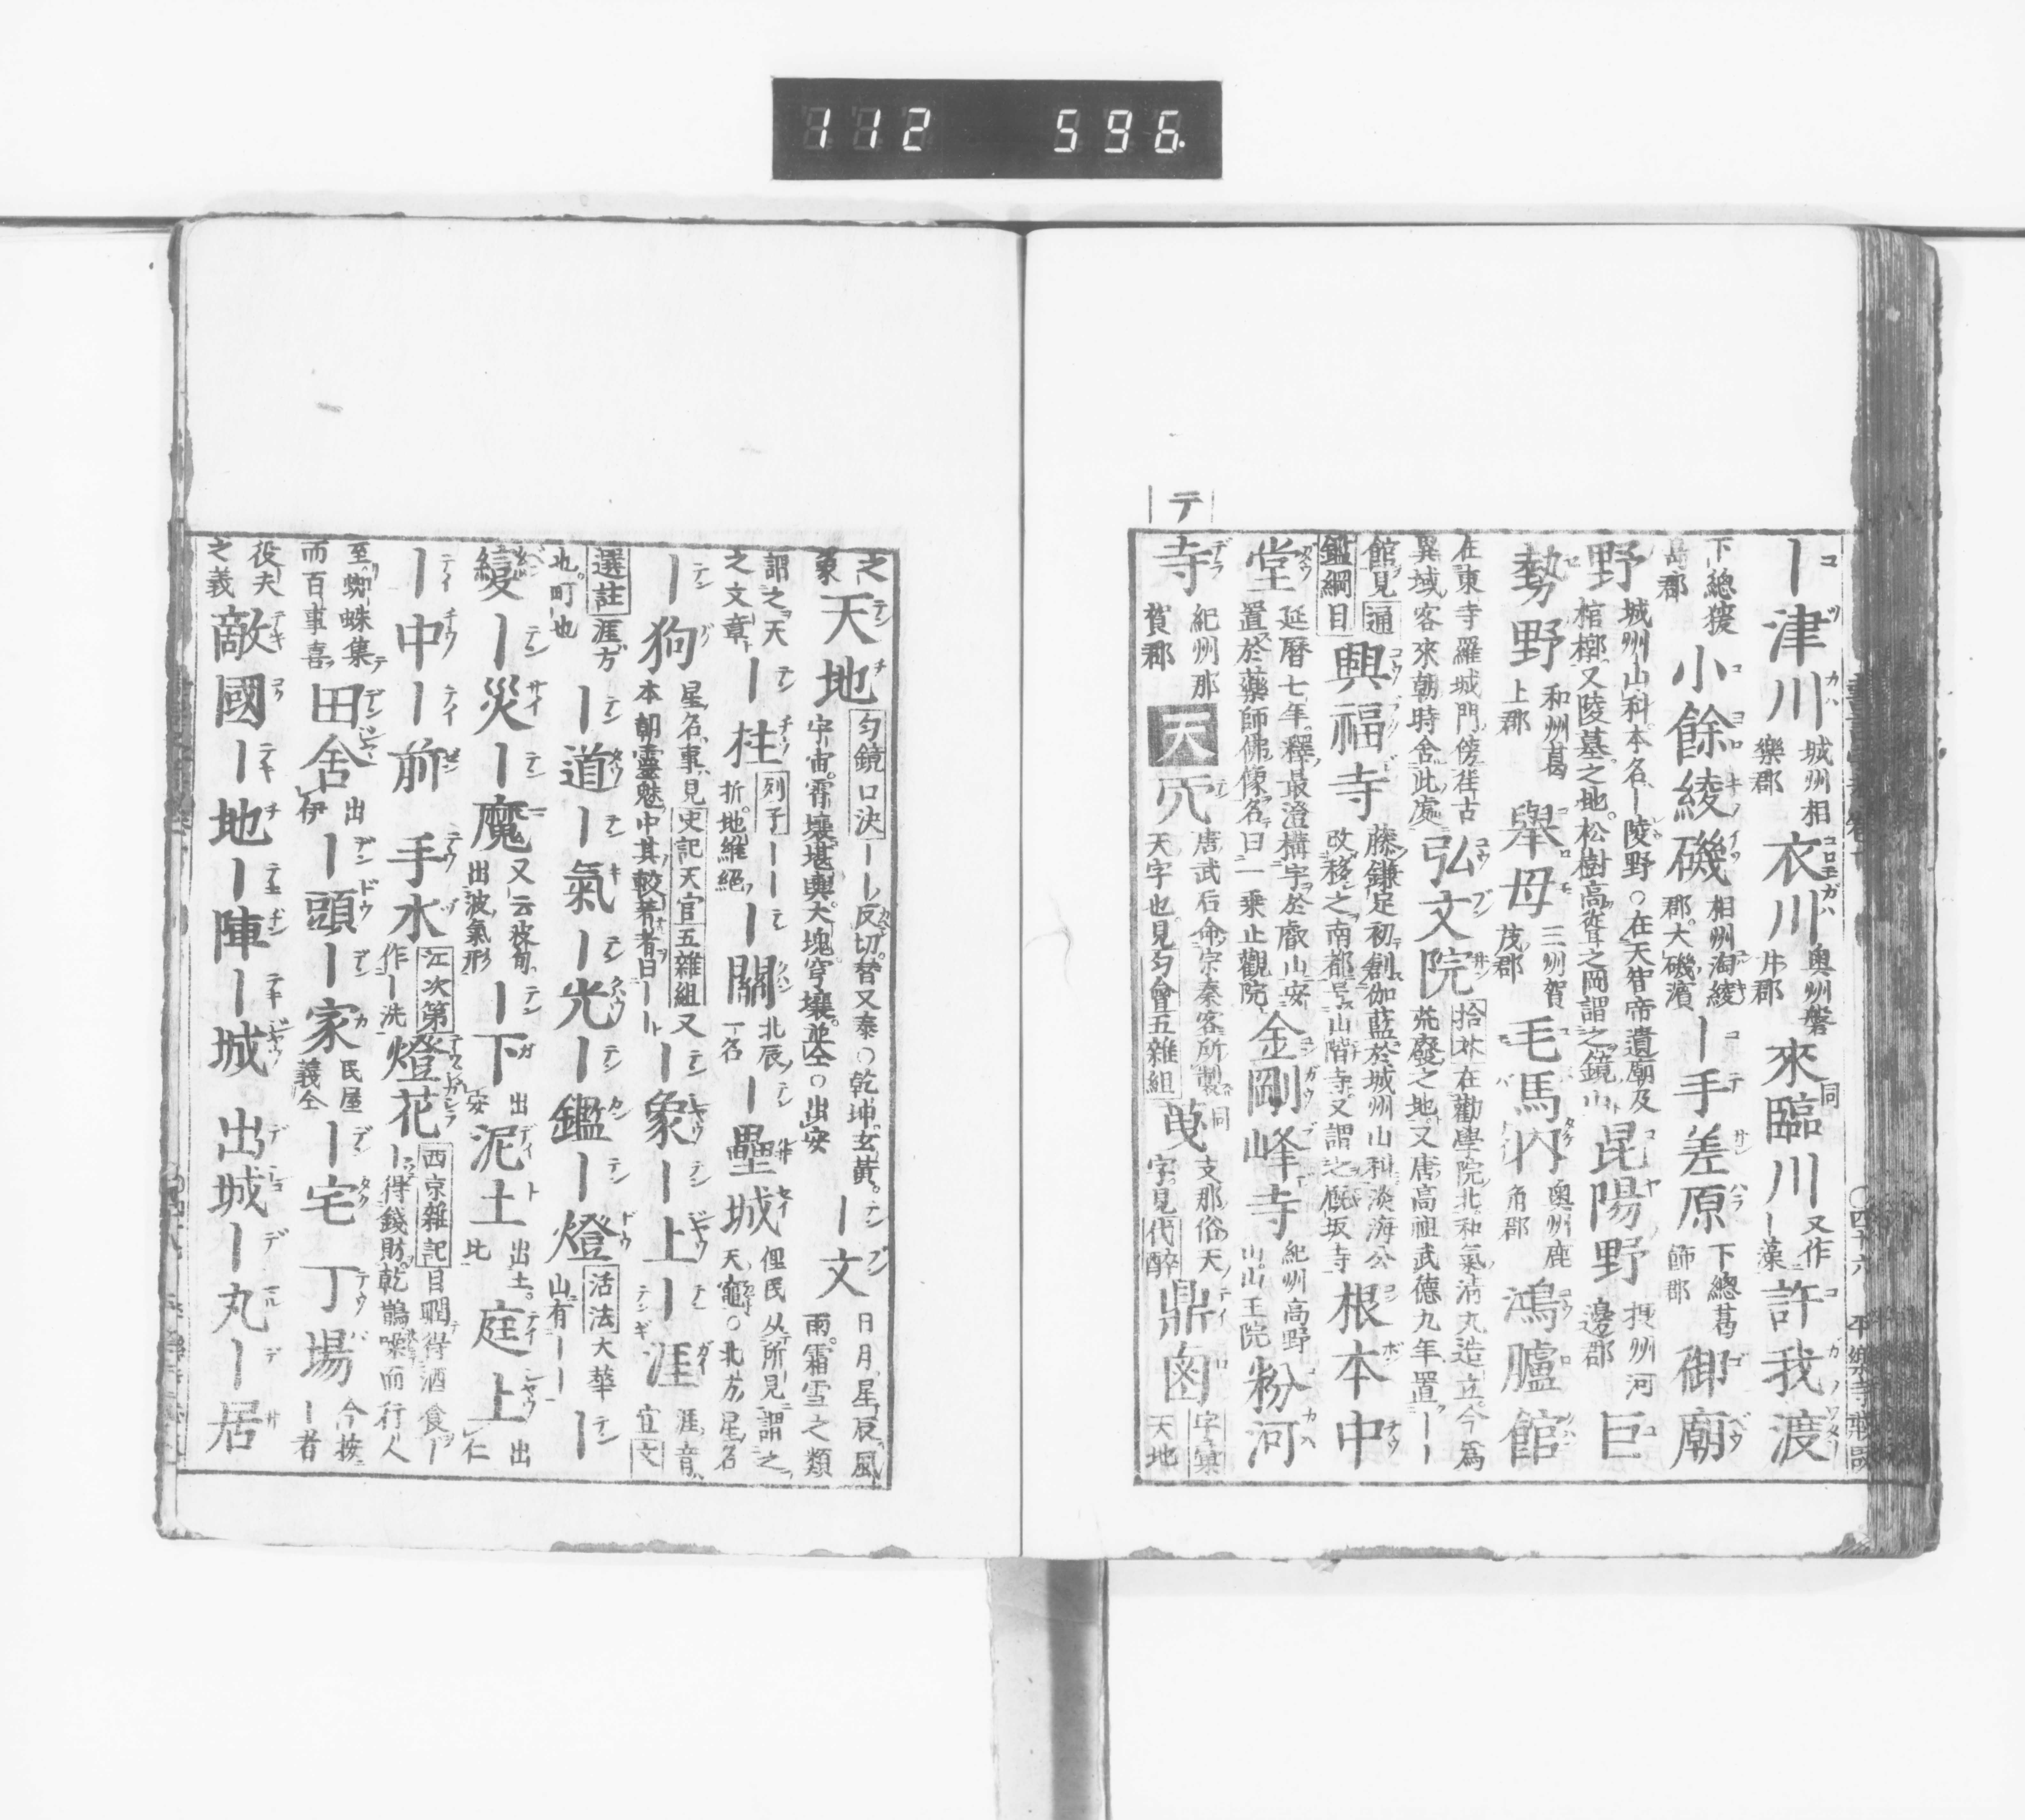 112 596
テ
｜津川 城州相樂郡 衣川 奥州磐井郡 來臨川 同 又作｜藻 許我渡
下總猨嶌郡 小餘綾磯 相州淘綾郡大磯濱 ｜手差原 下總葛餝郡 御廟
野 城州山科本名｜陵野○在天智帝遺廟及棺槨又陵墓之地松樹高聳之岡謂之鏡山 昆陽野 摂州河邊郡 巨
勢野 和州葛上郡 擧母 三州賀茂郡 毛馬内 奥州鹿角郡 鴻臚館
在東寺羅城門傍徃古異域客來朝時舍此處 弘文院 拾芥 在勸學院北和氣清丸造立今爲荒廢之地又唐高祖武德九年置｜｜
館見 通鑑綱目 興福寺 藤鎌足初創伽藍於城州山科淡海公改移之南都号山階寺又謂之厩坂寺 根本中
堂 延曆七年釋最澄構宇於叡山安置於藥師佛像名曰一乗止觀院 金剛峰寺 紀州高野山山王院 粉河
寺 紀州那賀郡 天 唐武石命宗秦客所製天字也見匀會五雜組 同 支那俗天字見代醉 鼎 字彙 天地
之象 天地 匀鏡口決 ｜｜反切替又泰○乾坤玄黃宇宙霄壤堪輿大塊穹壤並仝○出安 ｜文 日月星辰風雨霜雪之類
謂之天之文章 ｜柱 列子 ｜｜折地維絕 ｜關 北辰一名 ｜壘城 俚民从所見謂之天竈○北方星名
｜狗 星名事見 史記天官 五雜組 又本朝靈魅中其較著者曰｜｜ ｜象｜上｜涯 涯音宜 文
選註 涯方也町也 ｜道｜氣｜光｜鑑｜燈 活法 大華山有｜｜｜
｜災｜魔 又云波旬出波氣形 ｜下 出安 泥土 出土比 庭上 出仁
｜中｜前 手水 江次第 作｜洗 燈花 西京雜記 目瞤得酒食｜｜得錢財乾鵲噪而行人
至蜘蛛集而百事喜 田舍 出伊 ｜頭｜家 民屋義仝 ｜宅 丁場 今按｜者
役夫之義 敵國｜地｜陣｜城 出城｜丸｜居